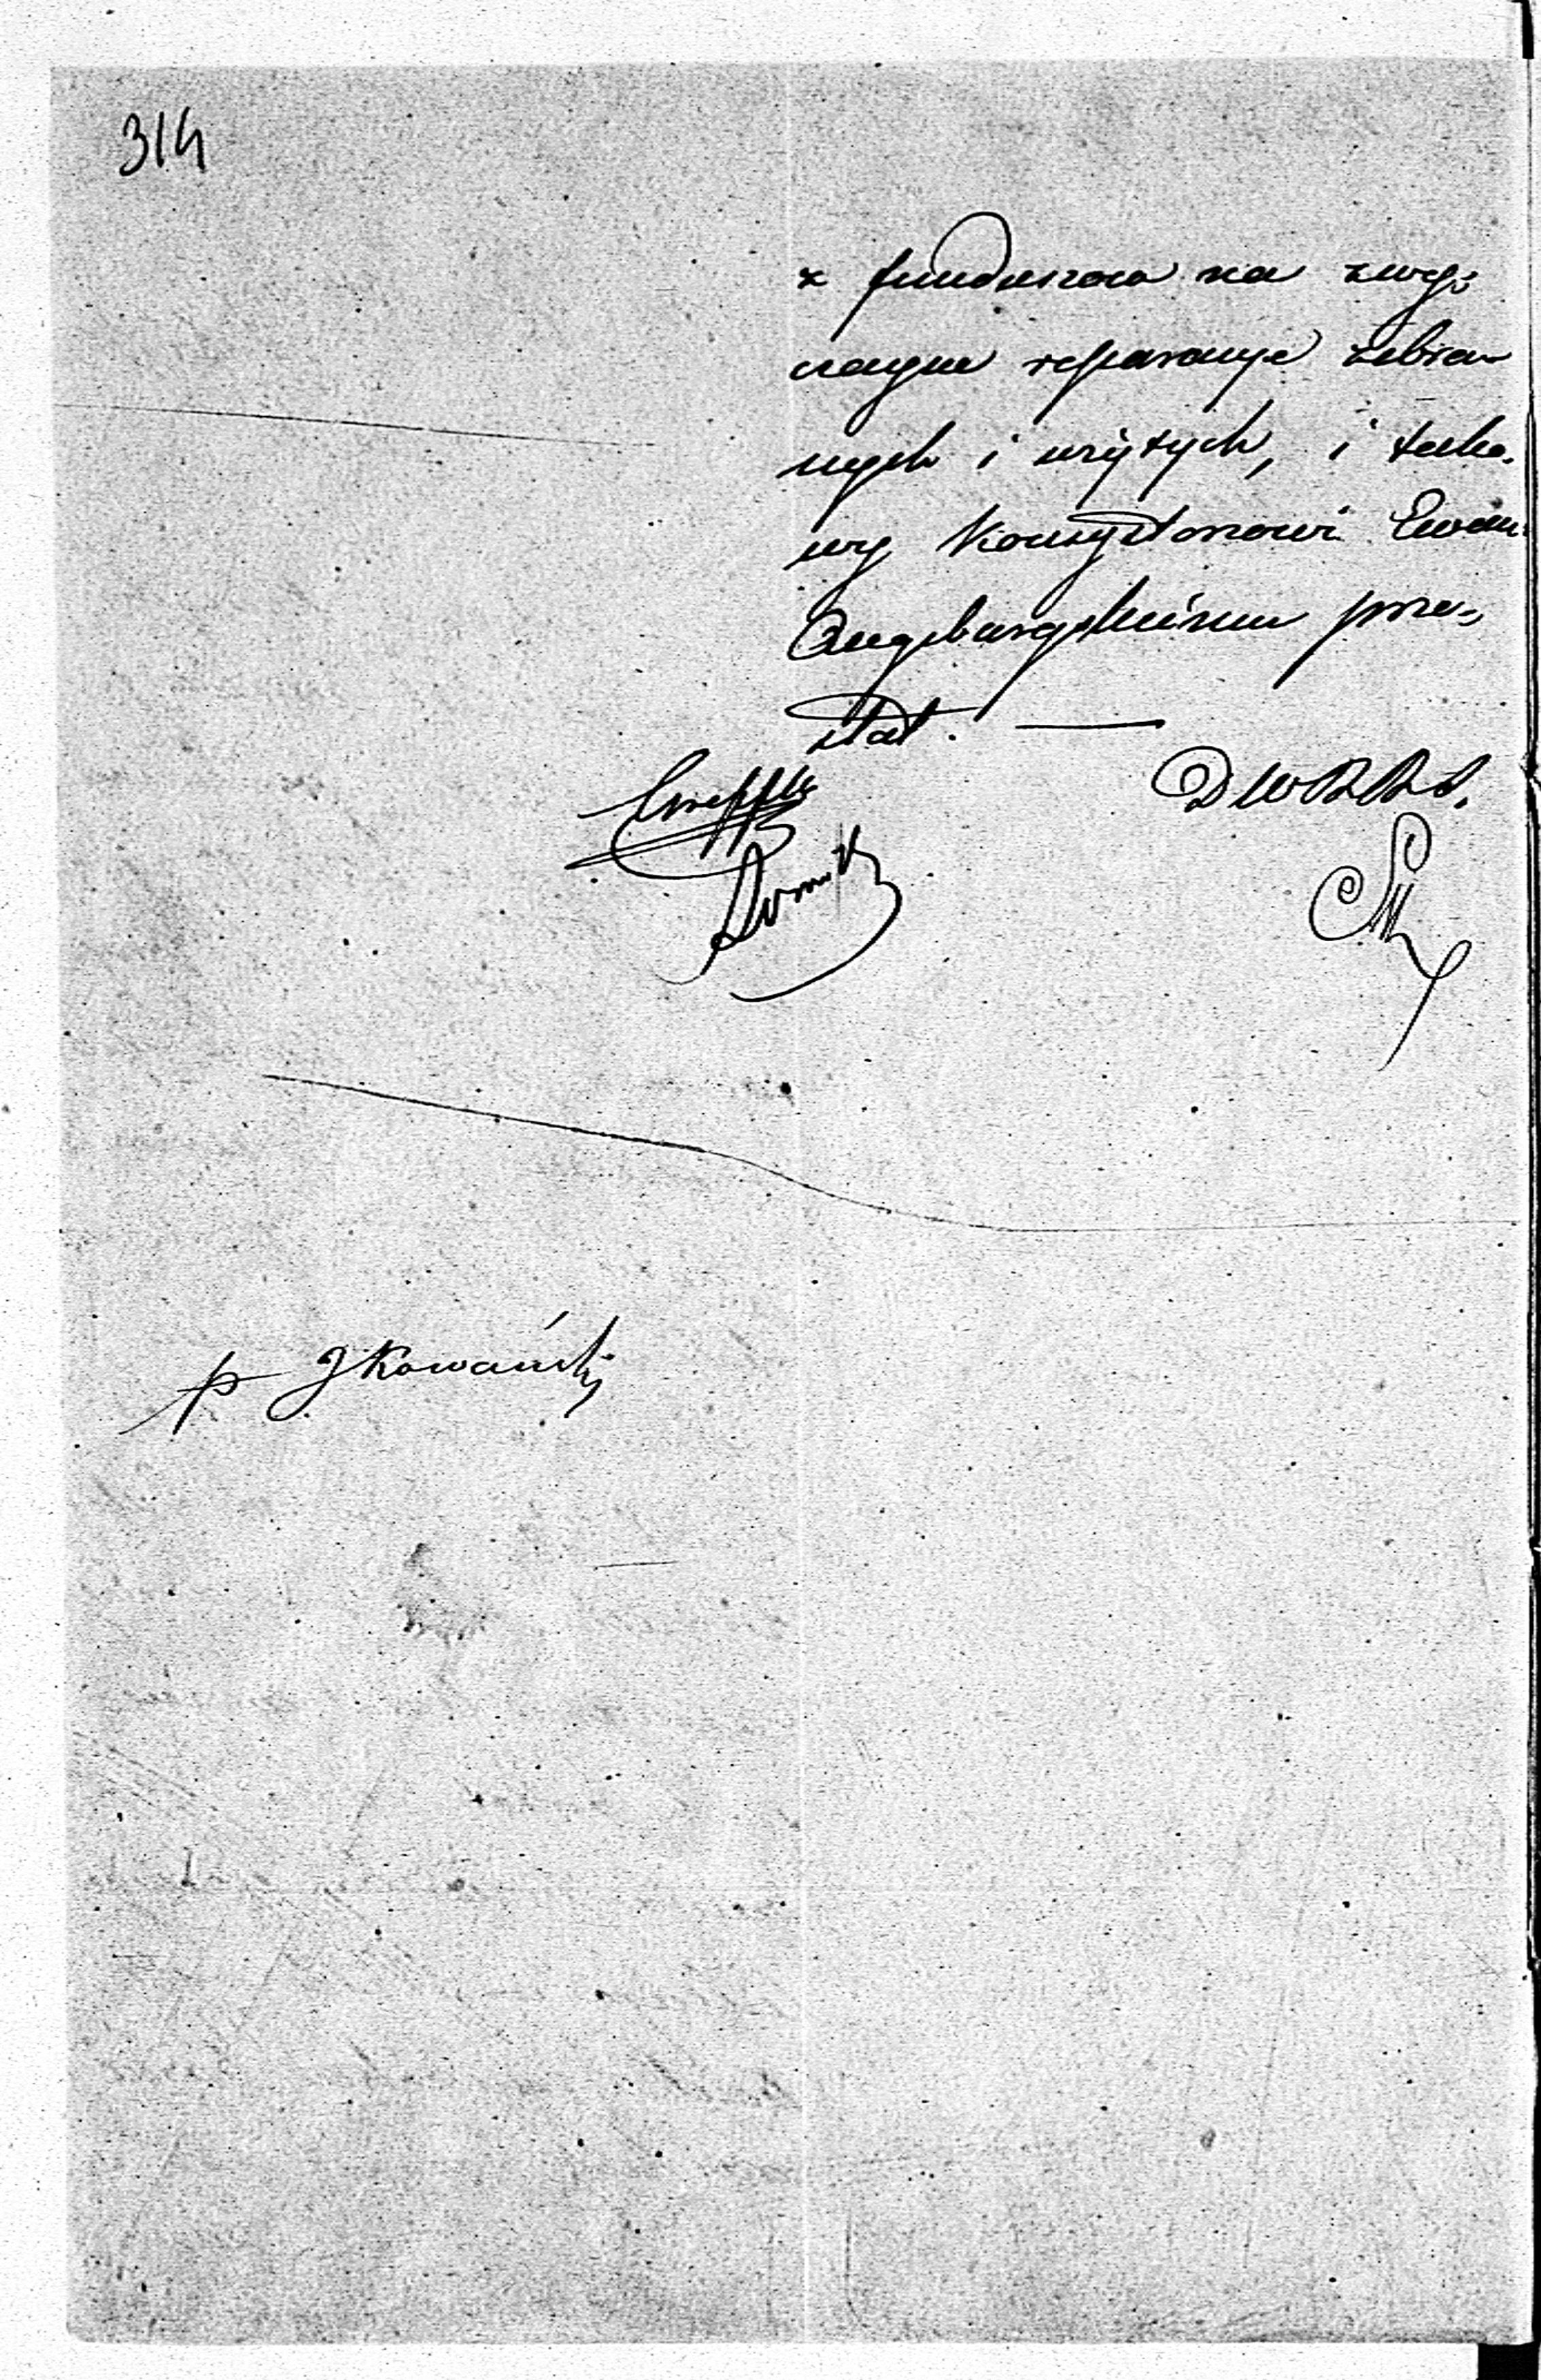 314
z funduszow na zwyż
rzeczone reparacye zebra-
nych i użytych, i tako-
wy Konsystorzowi Ewan:
Augsburgskiemu prze-
słał. —
D W R R P.
p JKowański